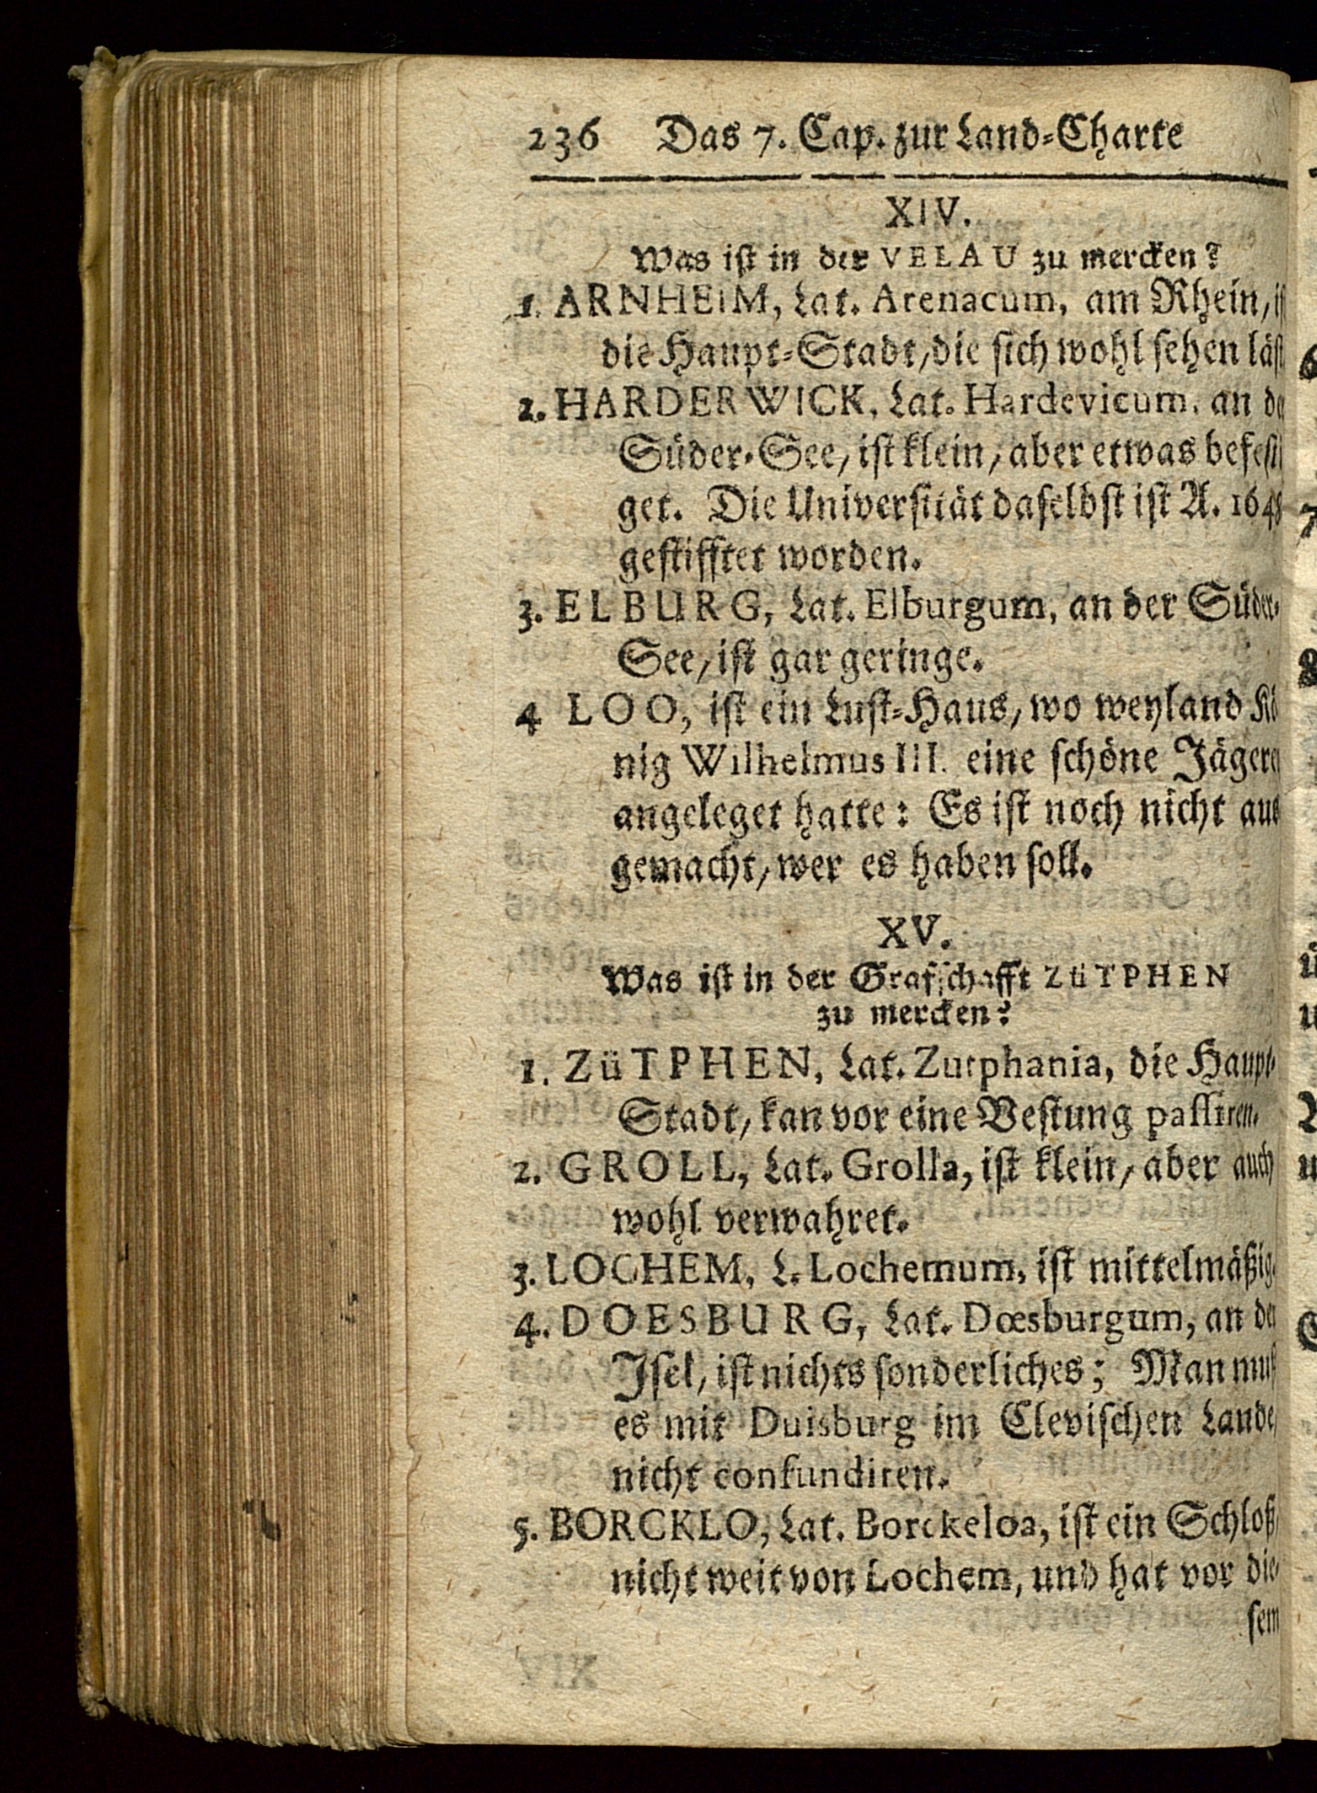 236 Das 7. Cap. zur Land-Charte
XIV.
Was ist in der VELAU zu mercken?
1. ARNHEIM, Lat. Arenacum, am Rhein,
die Haupt-Stadt, die sich wohl sehen läst
2. HARDERWICK, Lat. Hardevicum, an der
Süder-See, ist klein, aber etwas befesti
get. Die Universität daselbst ist A. 1648
gestifftet worden.
3. ELBURG, Lat. Elburgum, an der Süder-
See, ist gar geringe.
4 LOO, ist ein Lust-Haus, wo weyland Kö
nig Wilhelmus III. eine schöne Jägerey
angeleget hatte: Es ist noch nicht aus
gemacht, wer es haben soll.
XV.
Was ist in der Grafschafft ZüTPHEN
zu mercken?
1. ZüTPHEN, Lat. Zutphania, die Haupt-
Stadt, kan vor eine Vestung passiren.
2. GROLL, Lat. Grolla, ist klein, aber auch
wohl verwahret.
3. LOCHEM, L. Lochemum, ist mittelmäßig.
4. DOESBURG, Lat. Dœsburgum, an der
Isel, ist nichts sonderliches; Man muß
es mit Duisburg im Clevischen Lande
nicht confundiren.
5. BORCKLO, Lat. Borckeloa, ist ein Schloß
nicht weit von Lochem, und hat vor die-
sem